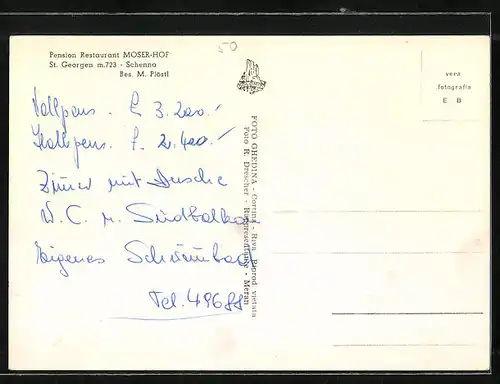 Pension Restaurant MOSER-HOF
St. Georgen m.723 - Schenna
Bes. M. Plöstl
50
Vollpens. £ 3.200.-
Halbpens. £. 2.400.-
Zimmer mit Dusche
W.C. u. Südbalkon
Eigenes Schwimmbad
Tel. 49688
FOTO GHEDINA - Cortina - Riva. Riprod. vietata
Foto R. Drescher - - Meran
vera
fotografia
E B